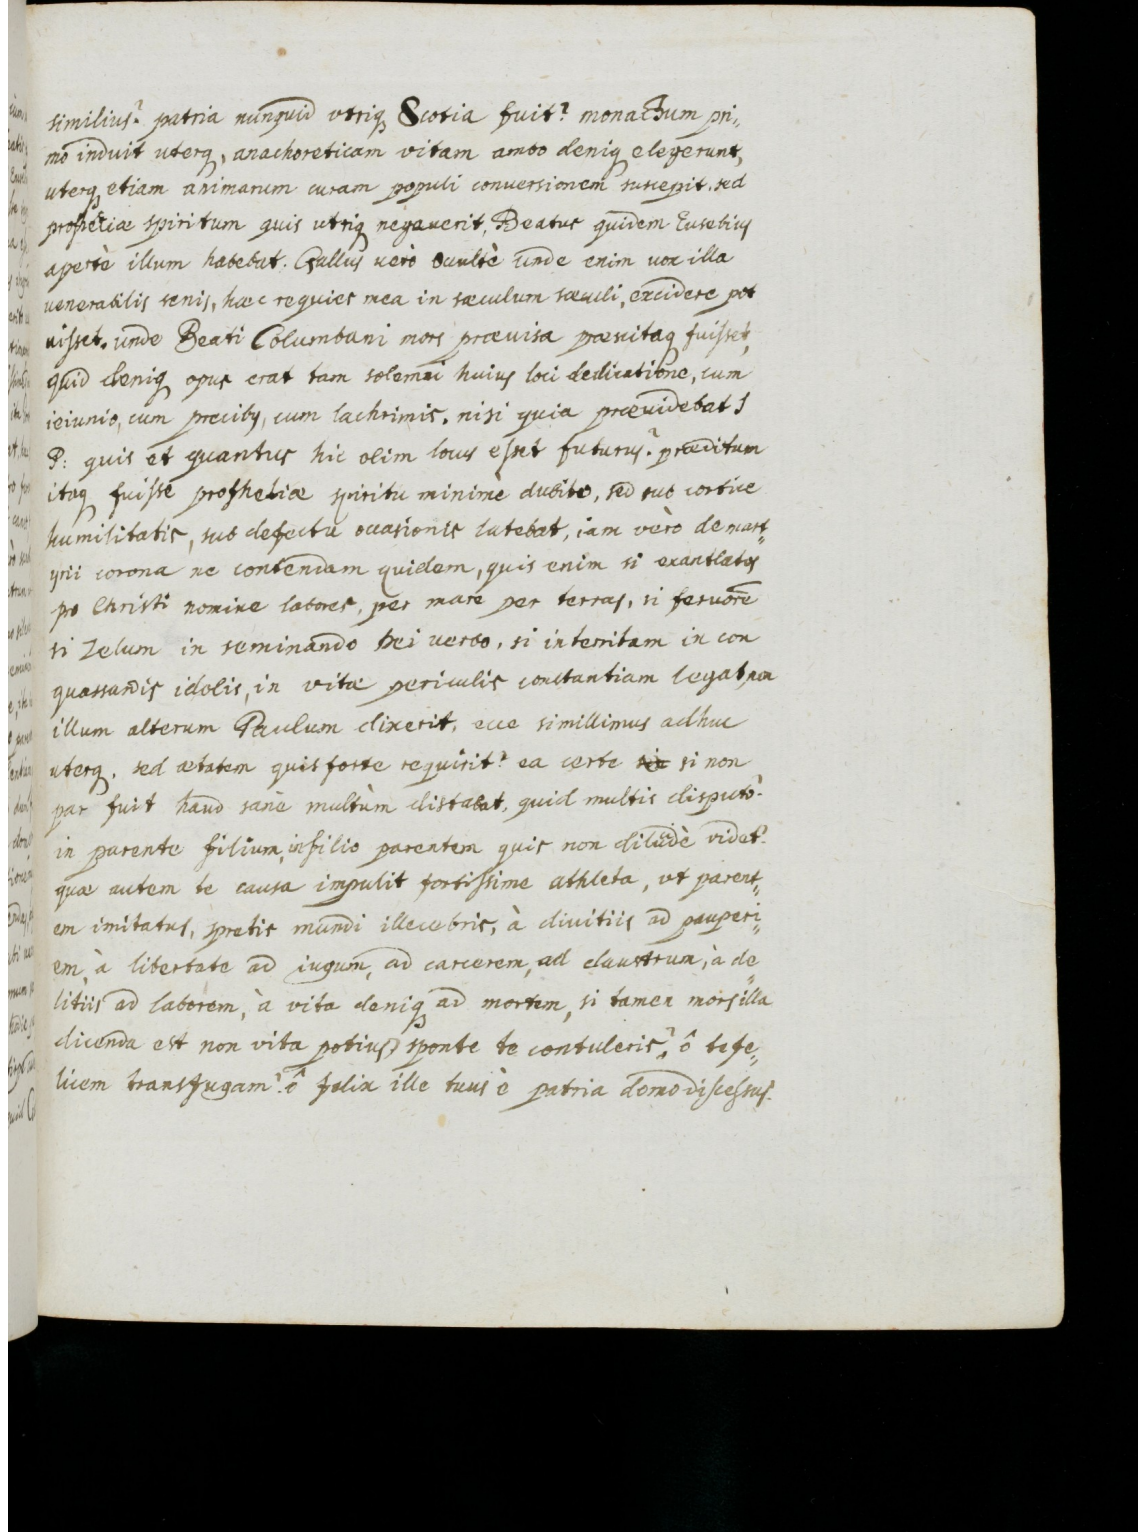 similius? patria nunquid utriq Scotia fuit? monachum pri„
mo induit uterq, anachoreticam vitam ambo deniq elegerunt,
uterq etiam animarum curam populi conversionem suscepit. sed
prophetiæ spiritum quis utriq negaverit, Beatus quidem Eusebius
apertè illum habebat. Gallus verò occultè unde enim vox illa
venerabilis senis, hæc requies mea in sæculum sæculi, excidere pot
uisset. unde Beati Columbani mors prævisa præscitaq fuisset,
quid deniq opus erat tam solemni huius loci dedicatione, cum
ieiunio, cum precibq, cum lachrimis. nisi quia prævidebat S
P: quis et quantus hic olim locus esset futurus? præditum
itaq fuisse prophetiæ spiritu minimè dubito, sed sub cortice
humilitatis, sub defectu occasionis latebat, iam verò de mart„
yrii corona ne contendam quidem, quis enim si exantlatos
pro Christi nomine labores, per mare per terras, si fervorem
si Zelum in seminando Dei verbo, si interritam in con
quassandis idolis, in vitæ periculis constantiam legat, non
illum alterum Paulum dixerit, ecce simillimus adhuc
uterq. sed ætatem quis forte requirit? ea certe si non
par fuit haud sanè multùm distabat, quid multis disputo?
in parente filium, in filio parentem quis non dilucidè videt?
quæ autem te causa impulit fortissime athleta, ut parent„
em imitatus, spretis mundi illecebris, à divitiis ad pauperi„
em, à libertate ad iugum, ad carcerem, ad claustrum, à de„
litiis ad laborem, à vita deniq ad mortem, si tamen mors illa
dicenda est non vita potius) sponte te contuleris? ô te fe„
licem transfugam? ô felix ille tuus è patria domo discessus.